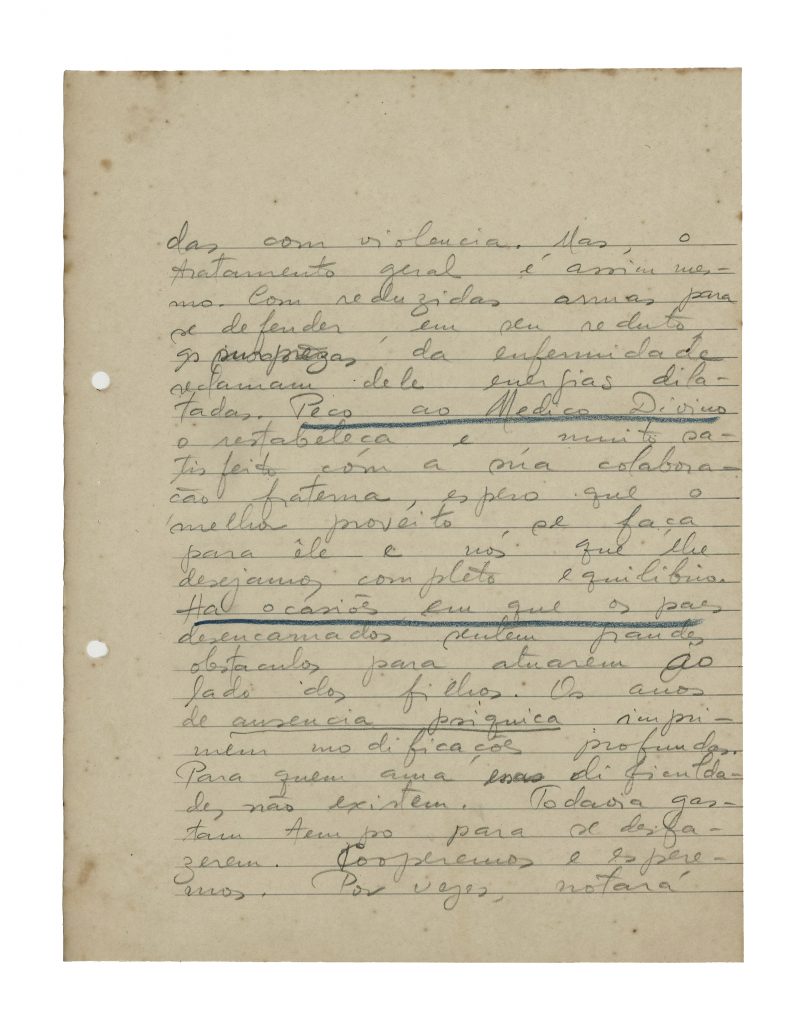 das com violencia. Mas, o
tratamento geral é assim mes-
mo. Com reduzidas armas para
se defender, em seu reduto,
as da enfermidade
reclamam dele energias dila-
tadas. Peço ao Medico Divino
o restabeleça e muito sa-
tisfeito com a sua colabora-
cão fraterna, espero que o
melhor proveito se faça
para êle e nós que lhe
desejamos completo equilibrio.
Ha ocasiões em que os paes
desencarnados sentem grandes
obstaculos para atuarem ao
lado dos filhos. Os anos
de ausencia psiquica impri-
mem modificações profundas.
Para quem ama, essas dificulda-
des não existem. Todavia gas-
tam tempo para se desfa-
zerem. Cooperemos e espere-
mos. Por vezes, notará